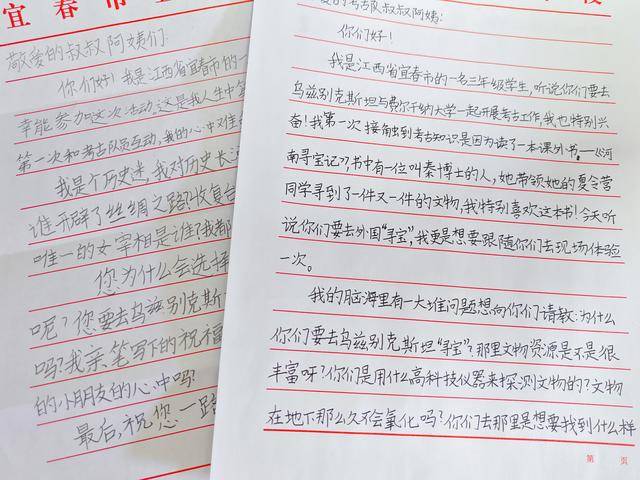 宜春市
敬爱的叔叔阿姨们:
你们好!我是江西省宜春市的一
幸能参加这次活动。这是我人生中
第一次和考古队员互动,我的心中难
我是个历史迷,我对历史长
谁开辟了丝绸之路?收复台
唯一的女宰相是谁?我都
您为什么会选择
呢?您要去乌兹别克斯
吗?我亲笔写下的祝福
的小朋友的心中吗?
最后,祝您一路
校
的考古队叔叔阿姨:
你们好!
我是江西省宜春市的一名三年级学生,听说你们要去
乌兹别克斯坦与费尔干纳大学一起开展考古工作,我也特别兴
奋!我第一次接触到考古知识是因为读了一本课外书——《河
南寻宝记》,书中有一位叫秦博士的人,她带领她的夏令营
同学寻到了一件又一件的文物,我特别喜欢这本书!今天听
说你们要去外国“寻宝”,我更是想要跟随你们去现场体验
一次。
我的脑海里有一大堆问题想向你们请教:为什么
你们要去乌兹别克斯坦“寻宝”?那里文物资源是不是很
丰富呀?你们是用什么高科技仪器来探测文物的?文物
在地下那么久不会氧化吗?你们去那里是想要找到什么样
第 页